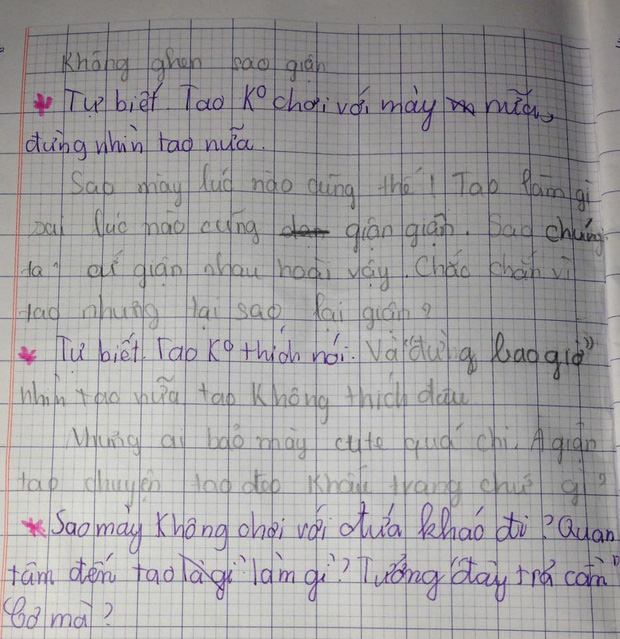 Không ghen sao giận
* Tự biết. Tao K° chơi với mày nữa,
đừng nhìn tao nữa.
Sao mày lúc nào cũng thế! Tao làm gì
sai lúc nào cũng giận giận. Sao chúng
ta cứ giận nhau hoài vậy. Chắc chắn vì
tao nhưng tại sao lại giận?
* Tự biết. Tao K° thích nói. Và "đừng bao giờ"
nhìn tao nữa tao không thích đâu
Nhưng ai bảo mày cute quá chi. A giận
tao chuyện tao đeo khẩu trang chứ gì?
* Sao mày không chơi với đứa khác đi? Quan
tâm đến tao là gì làm gì? Tưởng đây trả cần
"
mà?